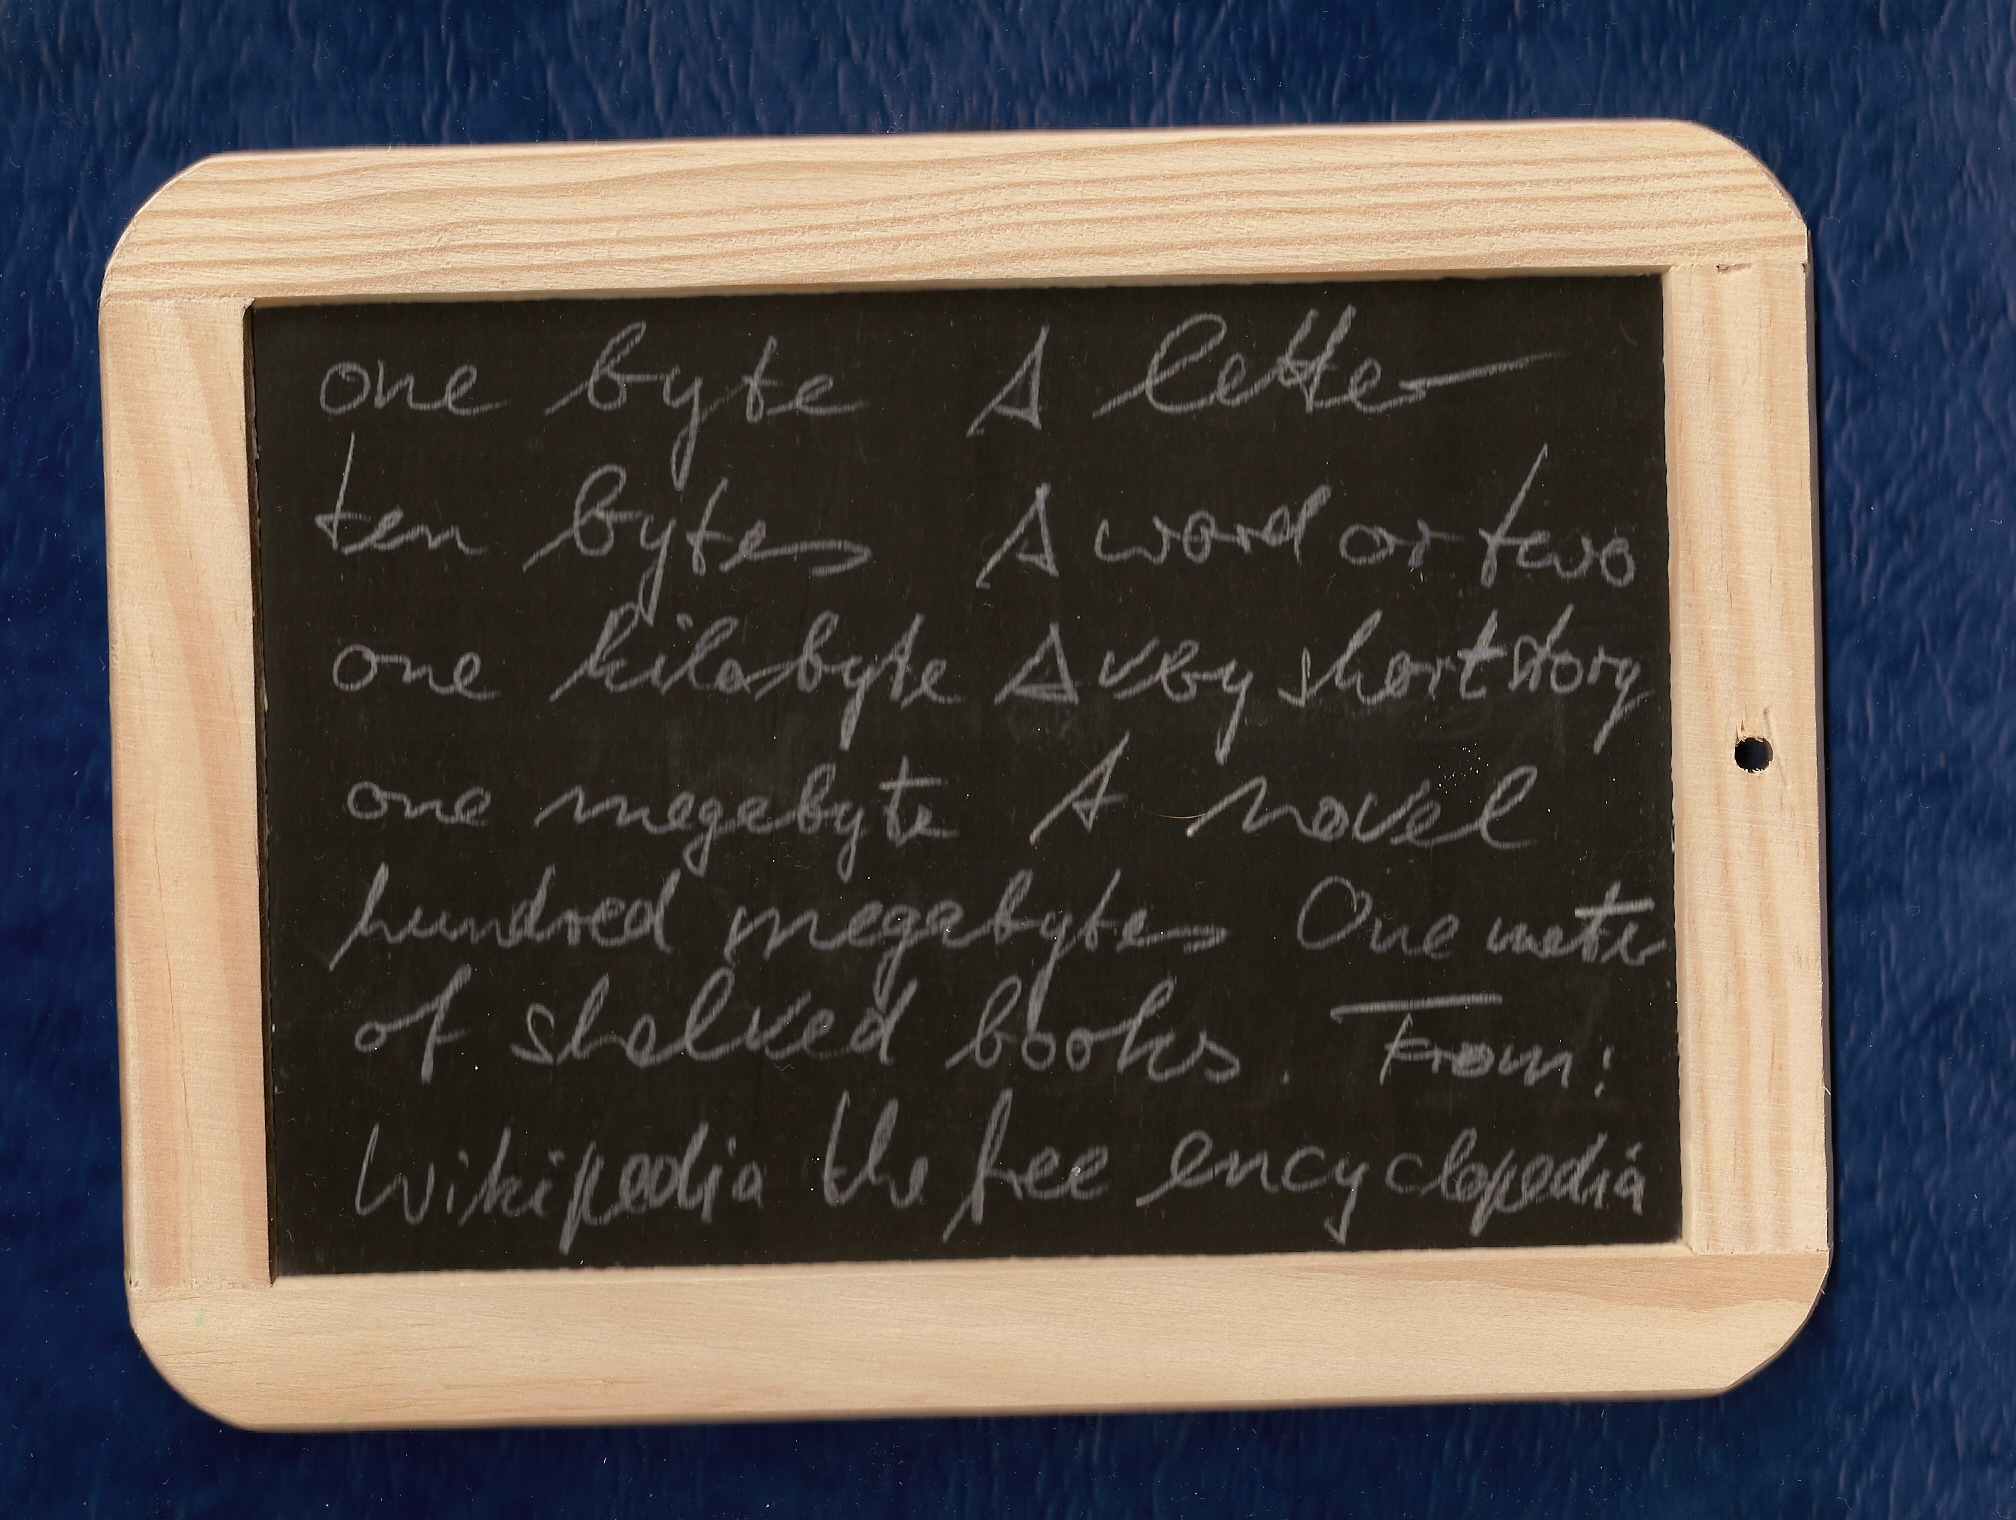 one byte A letter
ten bytes A word or two
one kilobyte A very short story
one megabyte A novel
hundred megabytes One meter
of shelved books. From:
Wikipedia the free encyclopedia